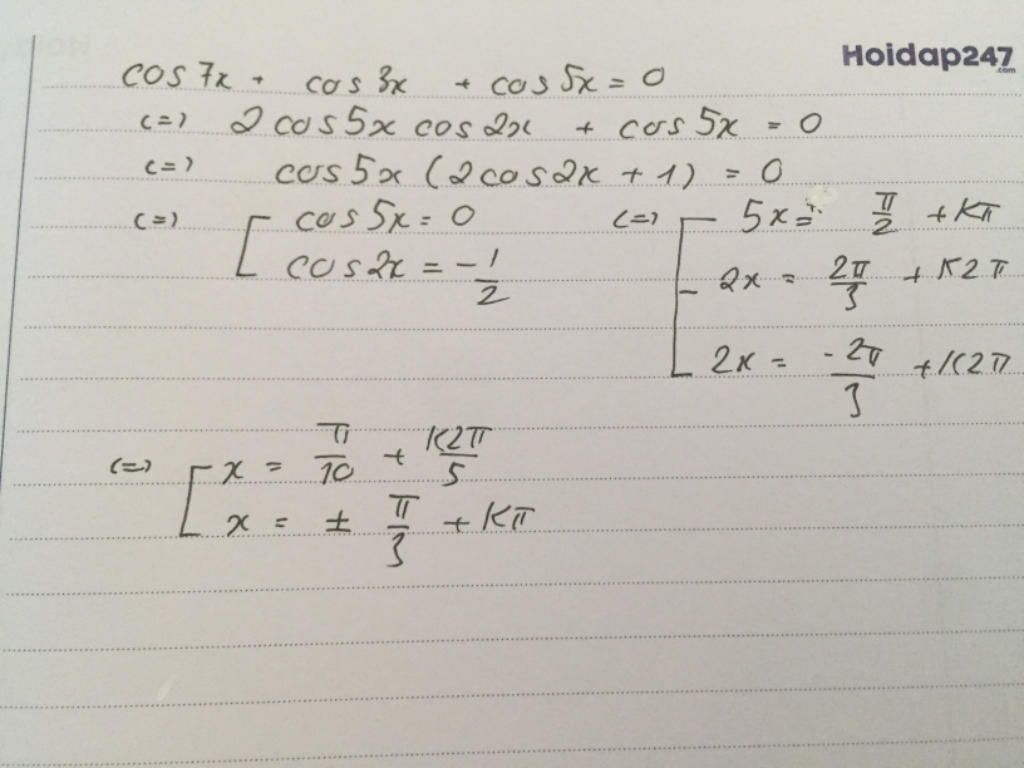 Hoidap247.com
cos 7x + cos 3x + cos 5x = 0
<=> 2 cos 5x cos 2x + cos 5x = 0
<=> cos 5x (2 cos 2x + 1) = 0
<=> [ cos 5x = 0 <=> [ 5x = π/2 + kπ
cos 2x = -1/2 2x = 2π/3 + k2π
2x = -2π/3 + k2π
<=> [ x = π/10 + k2π/5
x = ± π/3 + kπ